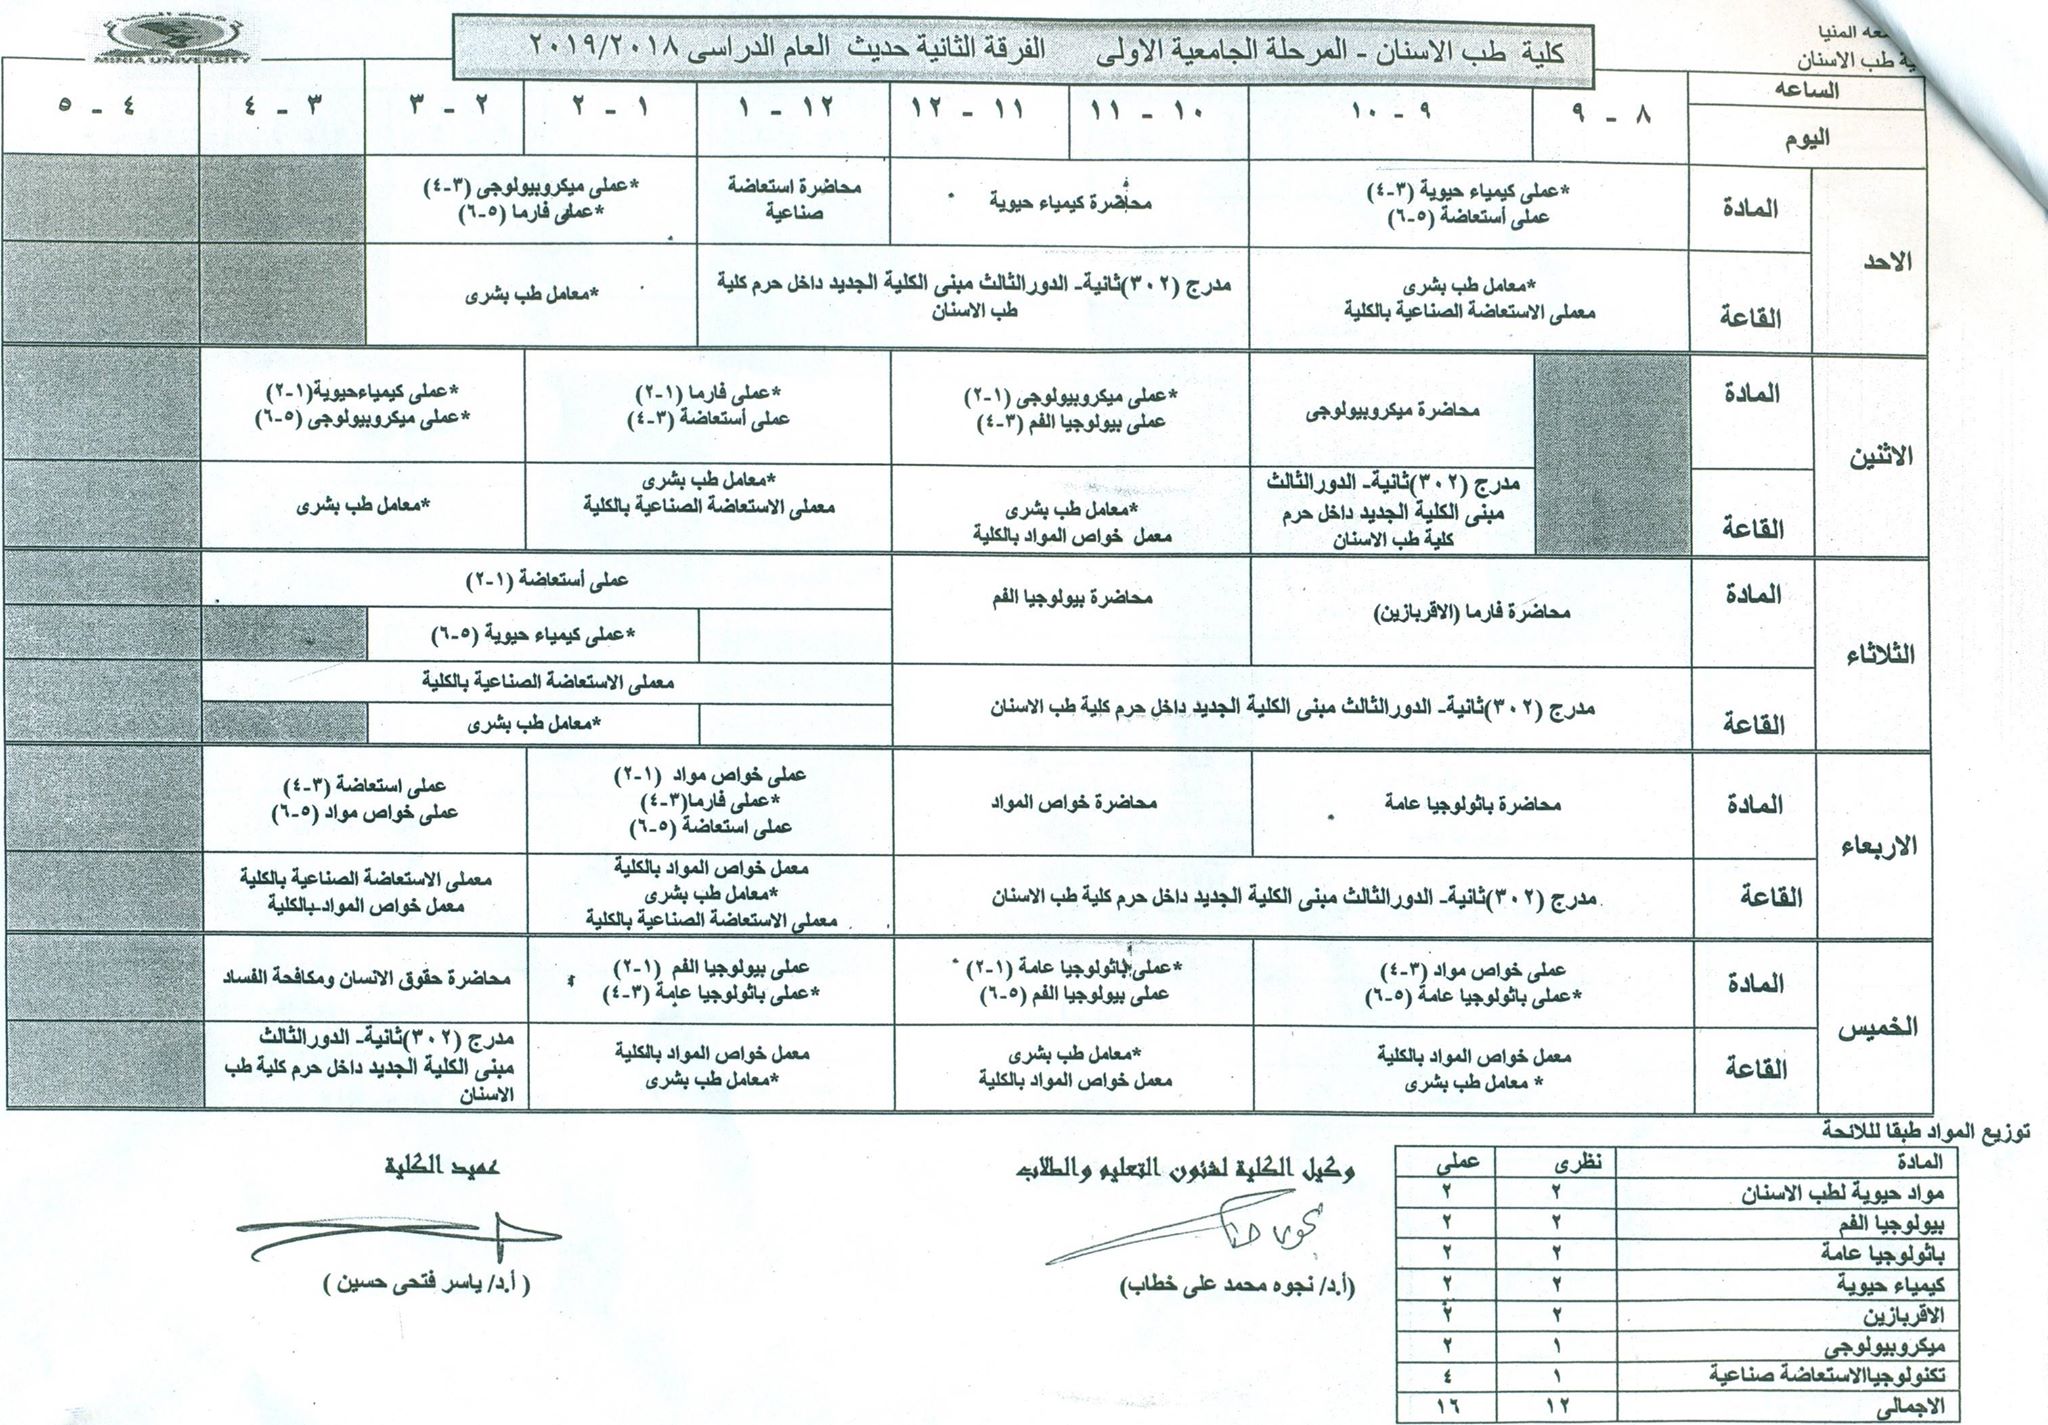 كلية طب الاسنان - المرحلة الجامعية الاولى الفرقة الثانية حديث العام الدراسى ٢٠١٩/٢٠١٨
عه المنيا
ية طب الاسنان
MINIA UNIVERSITY
الساعه
اليوم
٨ - ٩
٩ - ١٠
١٠ - ١١
١١ - ١٢
١٢ - ١
١ - ٢
٢ - ٣
٣ - ٤
٤ - ٥
الاحد
المادة
*عملى كيمياء حيوية (٣-٤)
عملى أستعاضة (٥-٦)
محاضرة كيمياء حيوية
محاضرة استعاضة
صناعية
*عملى ميكروبيولوجى (٣-٤)
*عملى فارما (٥-٦)
القاعة
*معامل طب بشرى
معملى الاستعاضة الصناعية بالكلية
مدرج (٣٠٢)ثانية- الدورالثالث مبنى الكلية الجديد داخل حرم كلية
طب الاسنان
*معامل طب بشرى
الاثنين
المادة
محاضرة ميكروبيولوجى
*عملى ميكروبيولوجى (١-٢)
عملى بيولوجيا الفم (٣-٤)
*عملى فارما (١-٢)
عملى أستعاضة (٣-٤)
*عملى كيمياءحيوية(١-٢)
*عملى ميكروبيولوجى (٥-٦)
القاعة
مدرج (٣٠٢)ثانية- الدورالثالث
مبنى الكلية الجديد داخل حرم
كلية طب الاسنان
*معامل طب بشرى
معمل خواص المواد بالكلية
*معامل طب بشرى
معملى الاستعاضة الصناعية بالكلية
*معامل طب بشرى
الثلاثاء
المادة
محاضرة فارما (الاقربازين)
محاضرة بيولوجيا الفم
عملى أستعاضة (١-٢)
*عملى كيمياء حيوية (٥-٦)
القاعة
مدرج (٣٠٢)ثانية- الدورالثالث مبنى الكلية الجديد داخل حرم كلية طب الاسنان
معملى الاستعاضة الصناعية بالكلية
*معامل طب بشرى
الاربعاء
المادة
محاضرة باثولوجيا عامة
محاضرة خواص المواد
عملى خواص مواد (١-٢)
*عملى فارما(٣-٤)
عملى استعاضة (٥-٦)
عملى استعاضة (٣-٤)
عملى خواص مواد (٥-٦)
القاعة
مدرج (٣٠٢)ثانية- الدورالثالث مبنى الكلية الجديد داخل حرم كلية طب الاسنان
معمل خواص المواد بالكلية
*معامل طب بشرى
معملى الاستعاضة الصناعية بالكلية
معملى الاستعاضة الصناعية بالكلية
معمل خواص المواد-بالكلية
الخميس
المادة
عملى خواص مواد (٣-٤)
*عملى باثولوجيا عامة (٥-٦)
*عملى باثولوجيا عامة (١-٢)
عملى بيولوجيا الفم (٥-٦)
عملى بيولوجيا الفم (١-٢)
*عملى باثولوجيا عامة (٣-٤)
محاضرة حقوق الانسان ومكافحة الفساد
القاعة
معمل خواص المواد بالكلية
* معامل طب بشرى
*معامل طب بشرى
معمل خواص المواد بالكلية
معمل خواص المواد بالكلية
*معامل طب بشرى
مدرج (٣٠٢)ثانية- الدورالثالث
مبنى الكلية الجديد داخل حرم كلية طب
الاسنان
توزيع المواد طبقا لللائحة
المادة نظرى عملى
مواد حيوية لطب الاسنان ٢ ٢
بيولوجيا الفم ٢ ٢
باثولوجيا عامة ٢ ٢
كيمياء حيوية ٢ ٢
الاقربازين ٢ ٢
ميكروبيولوجى ١ ٢
تكنولوجياالاستعاضة صناعية ١ ٤
الاجمالى ١٢ ١٦
وكيل الكلية لشئون التعليم والطلاب
(أ.د/ نجوه محمد على خطاب)
عميد الكلية
( أ.د/ ياسر فتحى حسين )